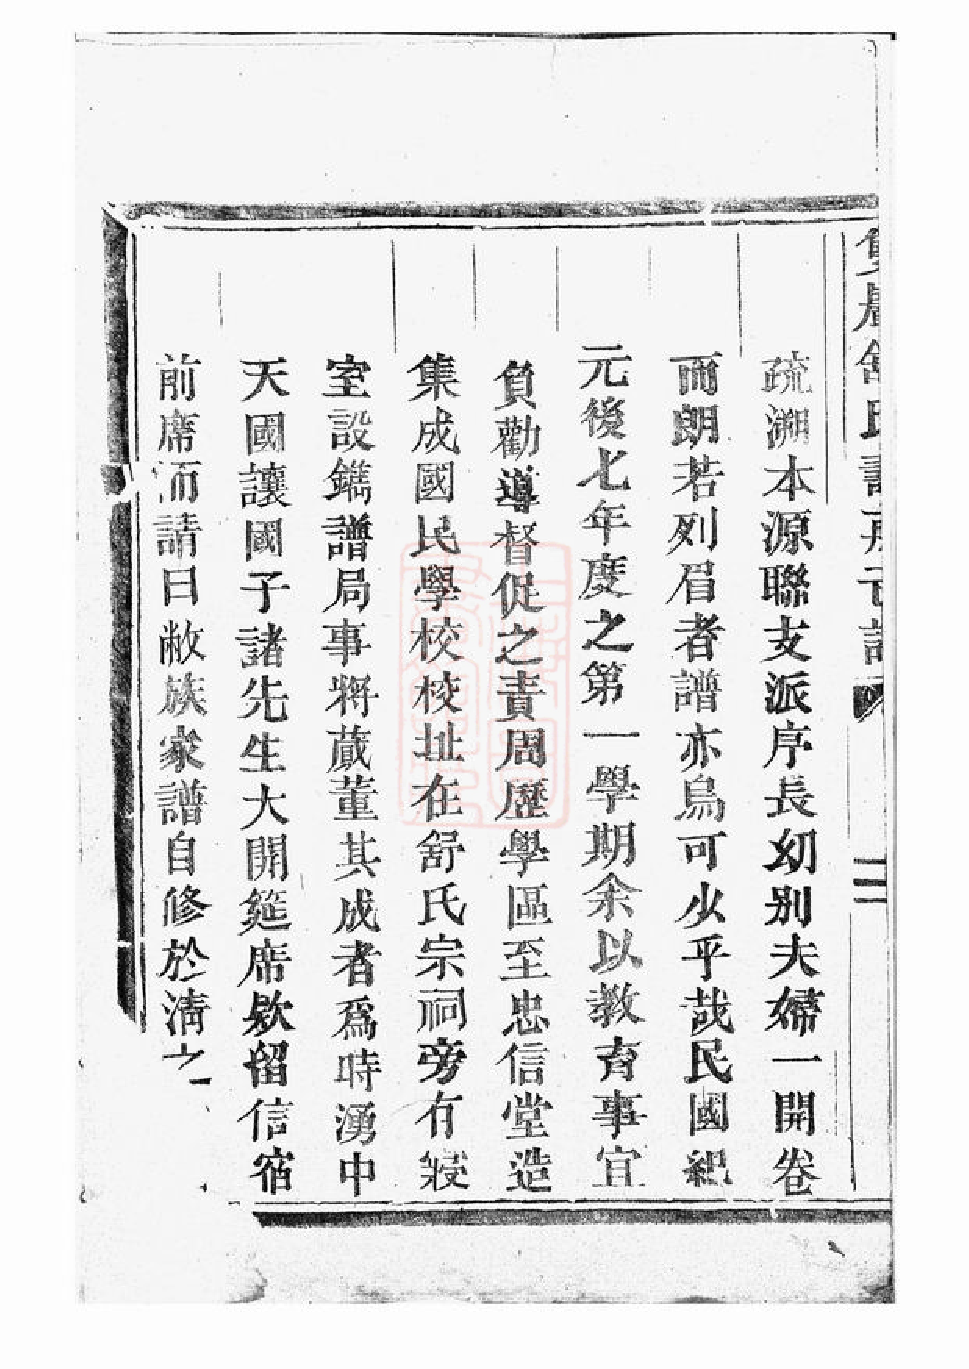 疏溯本源聯支派序長幼別夫婦一開卷
而朗若列眉者譜亦烏可少乎哉民國紀
元後七年度之第一學期余以教育事宜
負勸導督促之責周歷學區至忠信堂造
集成國民學校校址在舒氏宗祠旁有寢
室設鐫譜局事將蕆董其成者爲時湧中
天國讓國子諸先生大開筵席欵留信宿
前席而請曰敝族家譜自修於淸之